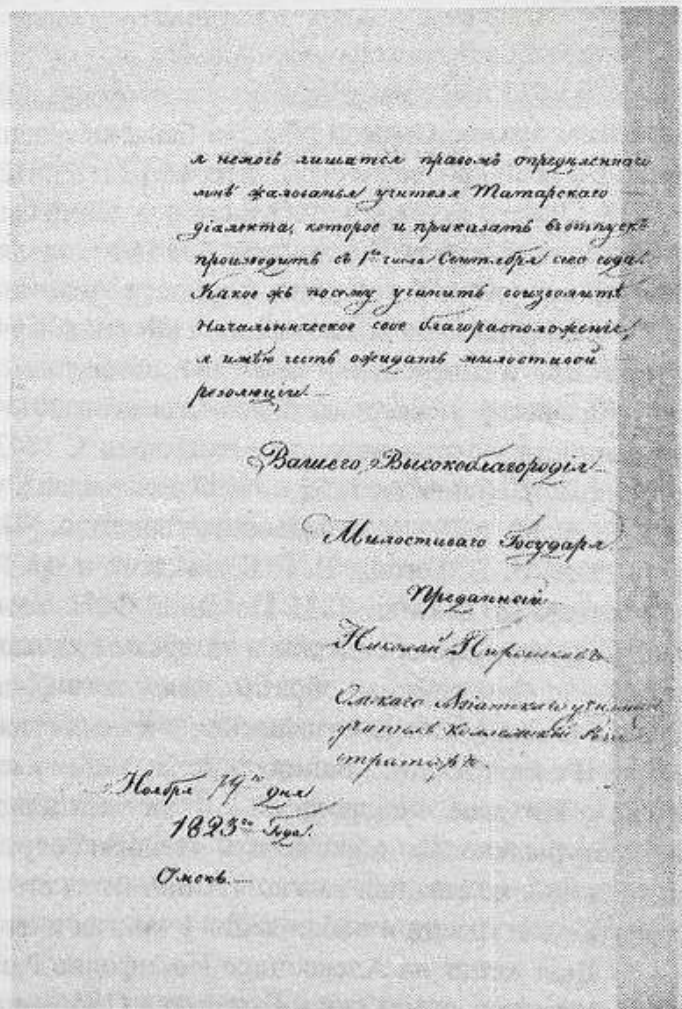 я немогъ лишатся правомъ опредѣленнаго
мнѣ жалованья учителя Татарскаго
діалекта, которое и приказать въ отпускъ
производить съ 1го числа Сентября сего года.
Какое жъ посему учинить соизволитѣ
Начальническое свое благорасположеніе,
я имѣю честь ожидать милостивой
резолюціи.—
Вашего Высокоблагородія
Милостиваго Государя
Преданный
Николай
Омскаго Азіатскаго училища
учитель Коллежскій Реги
страторъ
Ноября 19го дня
1823го Года.
Омскъ.—